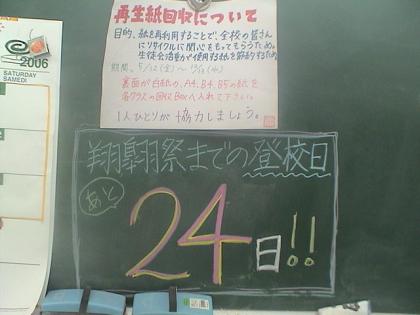 2006
SATURDAY
SAMEDI
再生紙回収について
目的、紙を再利用することで、全校の皆さん
にリサイクルに関心をもってもらうため。
生徒会活動が使用する紙を節約するため。
期間、5/12(金)～
裏面が白紙の、A4、B4、B5の紙を
各クラスの回収Boxへ入れて下さい。
1人ひとりが協力しましょう。
翔翺祭までの登校日
あと
24日!!